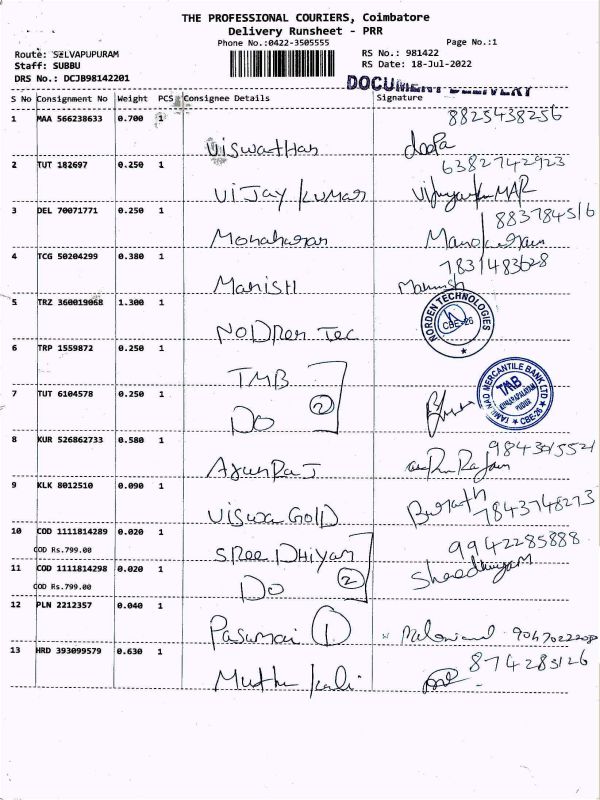 THE PROFESSIONAL COURIERS, Coimbatore
Delivery Runsheet - PRR
Phone No.:0422-3505555
Page No.:1
Route: SELVAPUPURAM
RS No.: 981422
Staff: SUBBU
RS Date: 18-Jul-2022
DRS No.: DCJB98142201
DOCUMENT DELIVERY
S No Consignment No Weight PCS Consignee Details Signature
8825438256
1 MAA 566238633 0.700 1
Viswathan deepa
6382742923
2 TUT 182697 0.250 1
Vijay kumar
883784516
3 DEL 70071771 0.250 1
Manoharan
7831483628
4 TCG 50204299 0.380 1
Manish Manish
5 TRZ 360019068 1.300 1
NORDEN TECHNOLOGIES
CBE-26
Norden Tec
6 TRP 1559872 0.250 1
TMB
2
TAMIL NAD MERCANTILE BANK LTD
TMB
CBE-26
7 TUT 6104578 0.250 1
Do
8 KUR 526862733 0.580 1
9843455521
Arun Raj
9 KLK 8012510 0.090 1
Viswa Gold
7843748273
10 COD 1111814289 0.020 1
9942285888
COD Rs.799.00
Sree Dhiyan
11 COD 1111814298 0.020 1
2
COD Rs.799.00
Do
12 PLN 2212357 0.040 1
Pasumai 1
13 HRD 393099579 0.630 1
874285126
Muthu kali